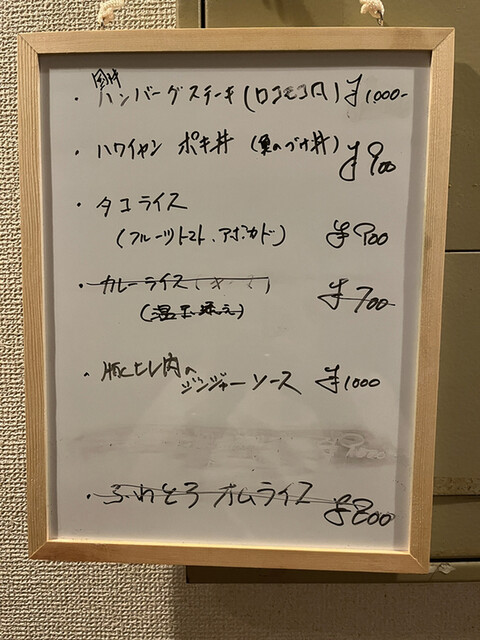 ・ハンバーグステーキ(ロコモコ風) ¥1000-
・ハワイヤン ポキ丼 (漬け丼) ¥900
・タコライス
(フルーツトマト、アボカド) ¥900
・カレーライス ¥700
(温玉添え)
・豚ヒレ肉の
ジンジャーソース ¥1000
・ふわとろ オムライス ¥800